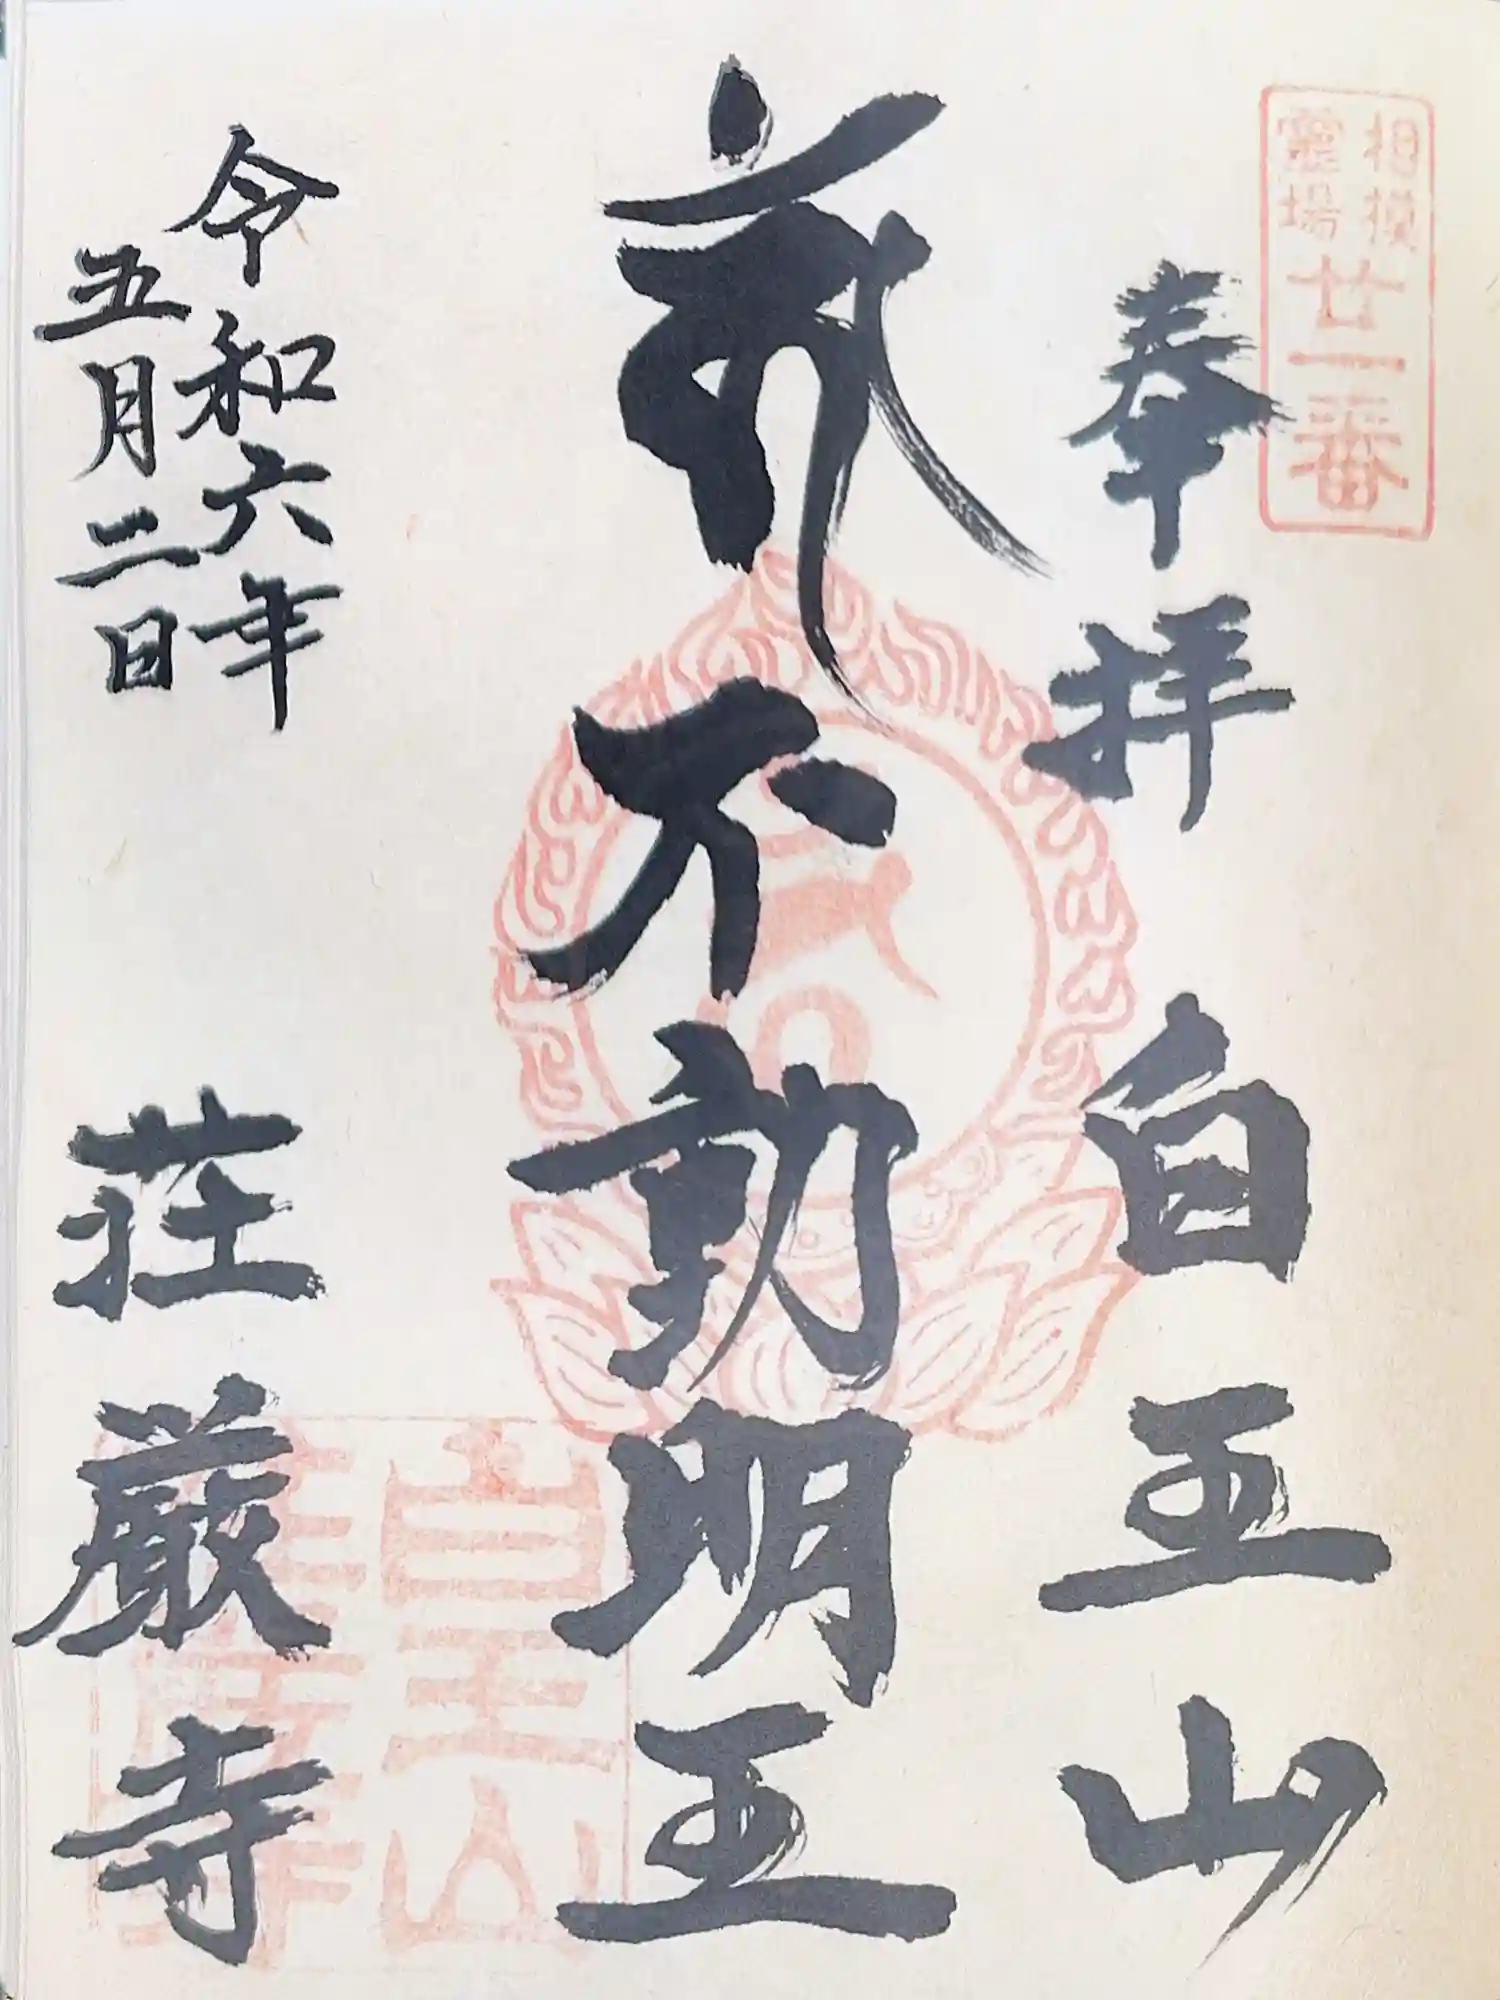 相模
霊場
廿一番
奉拝 白王山
不動明王
令和六年
五月二日
荘厳寺
白王山